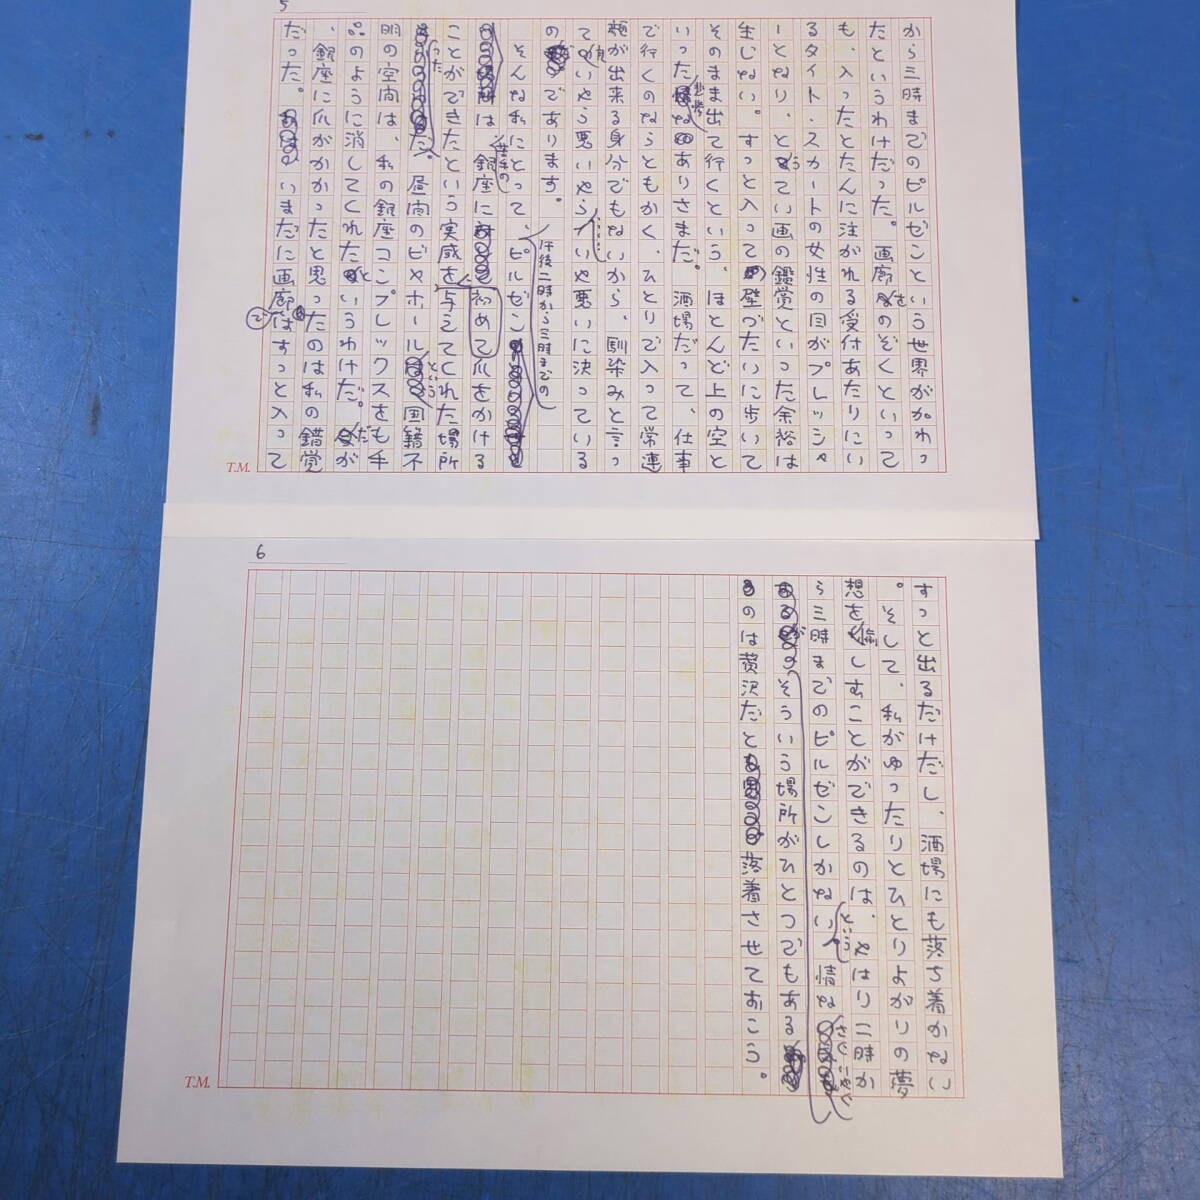 5
から三時までのピルゼンという世界がかわっ
たというわけだった。画廊をのぞくといって
も、入ったとたんに注がれる受付あたりにい
るタイト・スカートの女性の目がプレッシャ
ーとなり、とうてい画の鑑賞といった余裕は
生じない。すっと入って壁づたいに歩いて
そのまま出て行くという、ほとんど上の空と
いった悲惨なありさまだ。酒場だって、仕事
で行くのならともかく、ひとりで入って常連
顔が出来る身分でもないから、馴染みと言っ
ていやら悪いやら、いや悪いに決っている
のであります。
そんな私にとって、午後二時から三時までのピルゼン
は銀座に初めて爪をかける
ことができたという実感を与えてくれた場所
だった。昼間のビヤホールという国籍不
明の空間は、私の銀座コンプレックスをも手
品のように消してくれたというわけだ。だが
、銀座に爪がかかったと思ったのは私の錯覚
だった。いまだに画廊ではすっと入って
T.M.
6
すっと出るだけだし、酒場にも落ち着かない
。そして、私がゆったりとひとりよがりの夢
想を愉しむことができるのは、やはり二時か
ら三時までのピルゼンしかないという情な
が、そういう場所がひとつでもある
のは贅沢だと落着させておこう。
T.M.